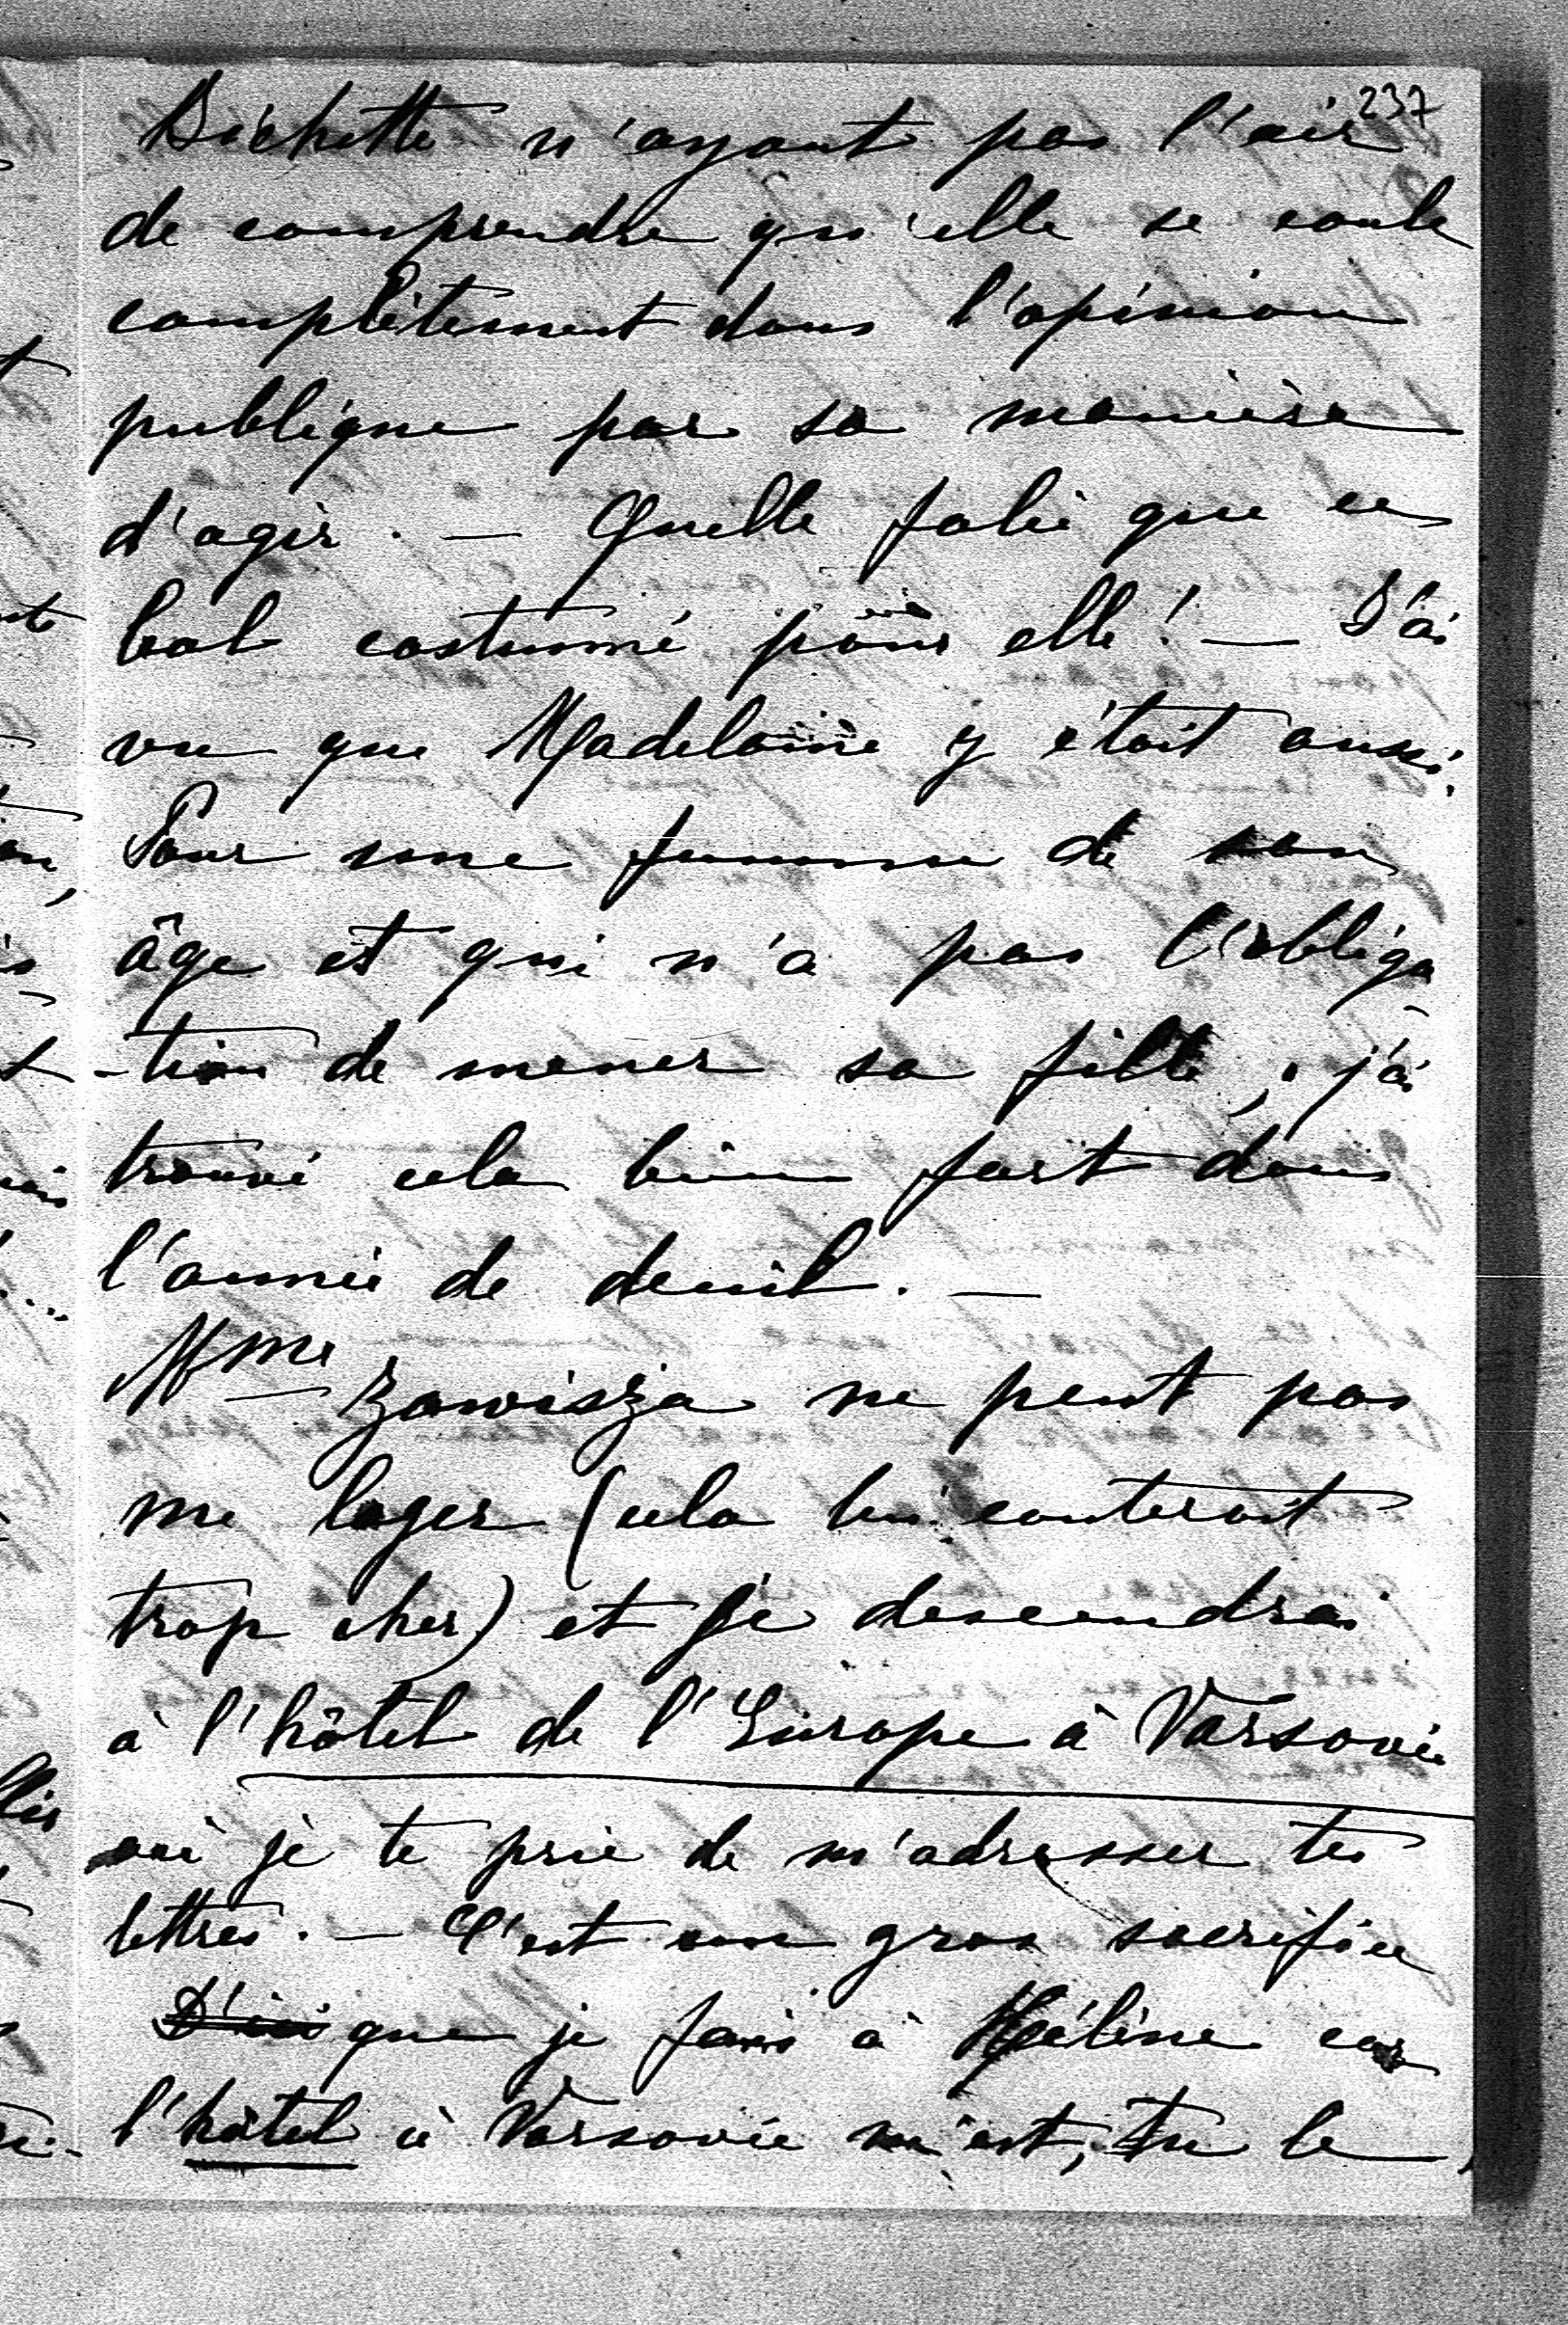 237
Bichette n'ayant pas l'air
de comprendre qu'elle se coule
complètement dans l'opinion
publique par sa manière
d'agir. — Quelle folie que ce
bal costumé pour elle! — J'ai
vu que Madelaine y était aussi.
Pour une femme de son
âge et qui n'a pas l'obliga
-tion de mener sa fille, j'ai
trouvé cela bien fort dans
l'année de deuil. —
Mme Zawisza ne peut pas
me loger (cela lui couterait
trop cher) et je descendrai
à l'hôtel de l'Europe à Varsovie
où je te prie de m'adresser tes
lettres. — C'est un gros sacrifice
que je fais à Hélène car
l'hôtel à Varsovie m'est, tu le